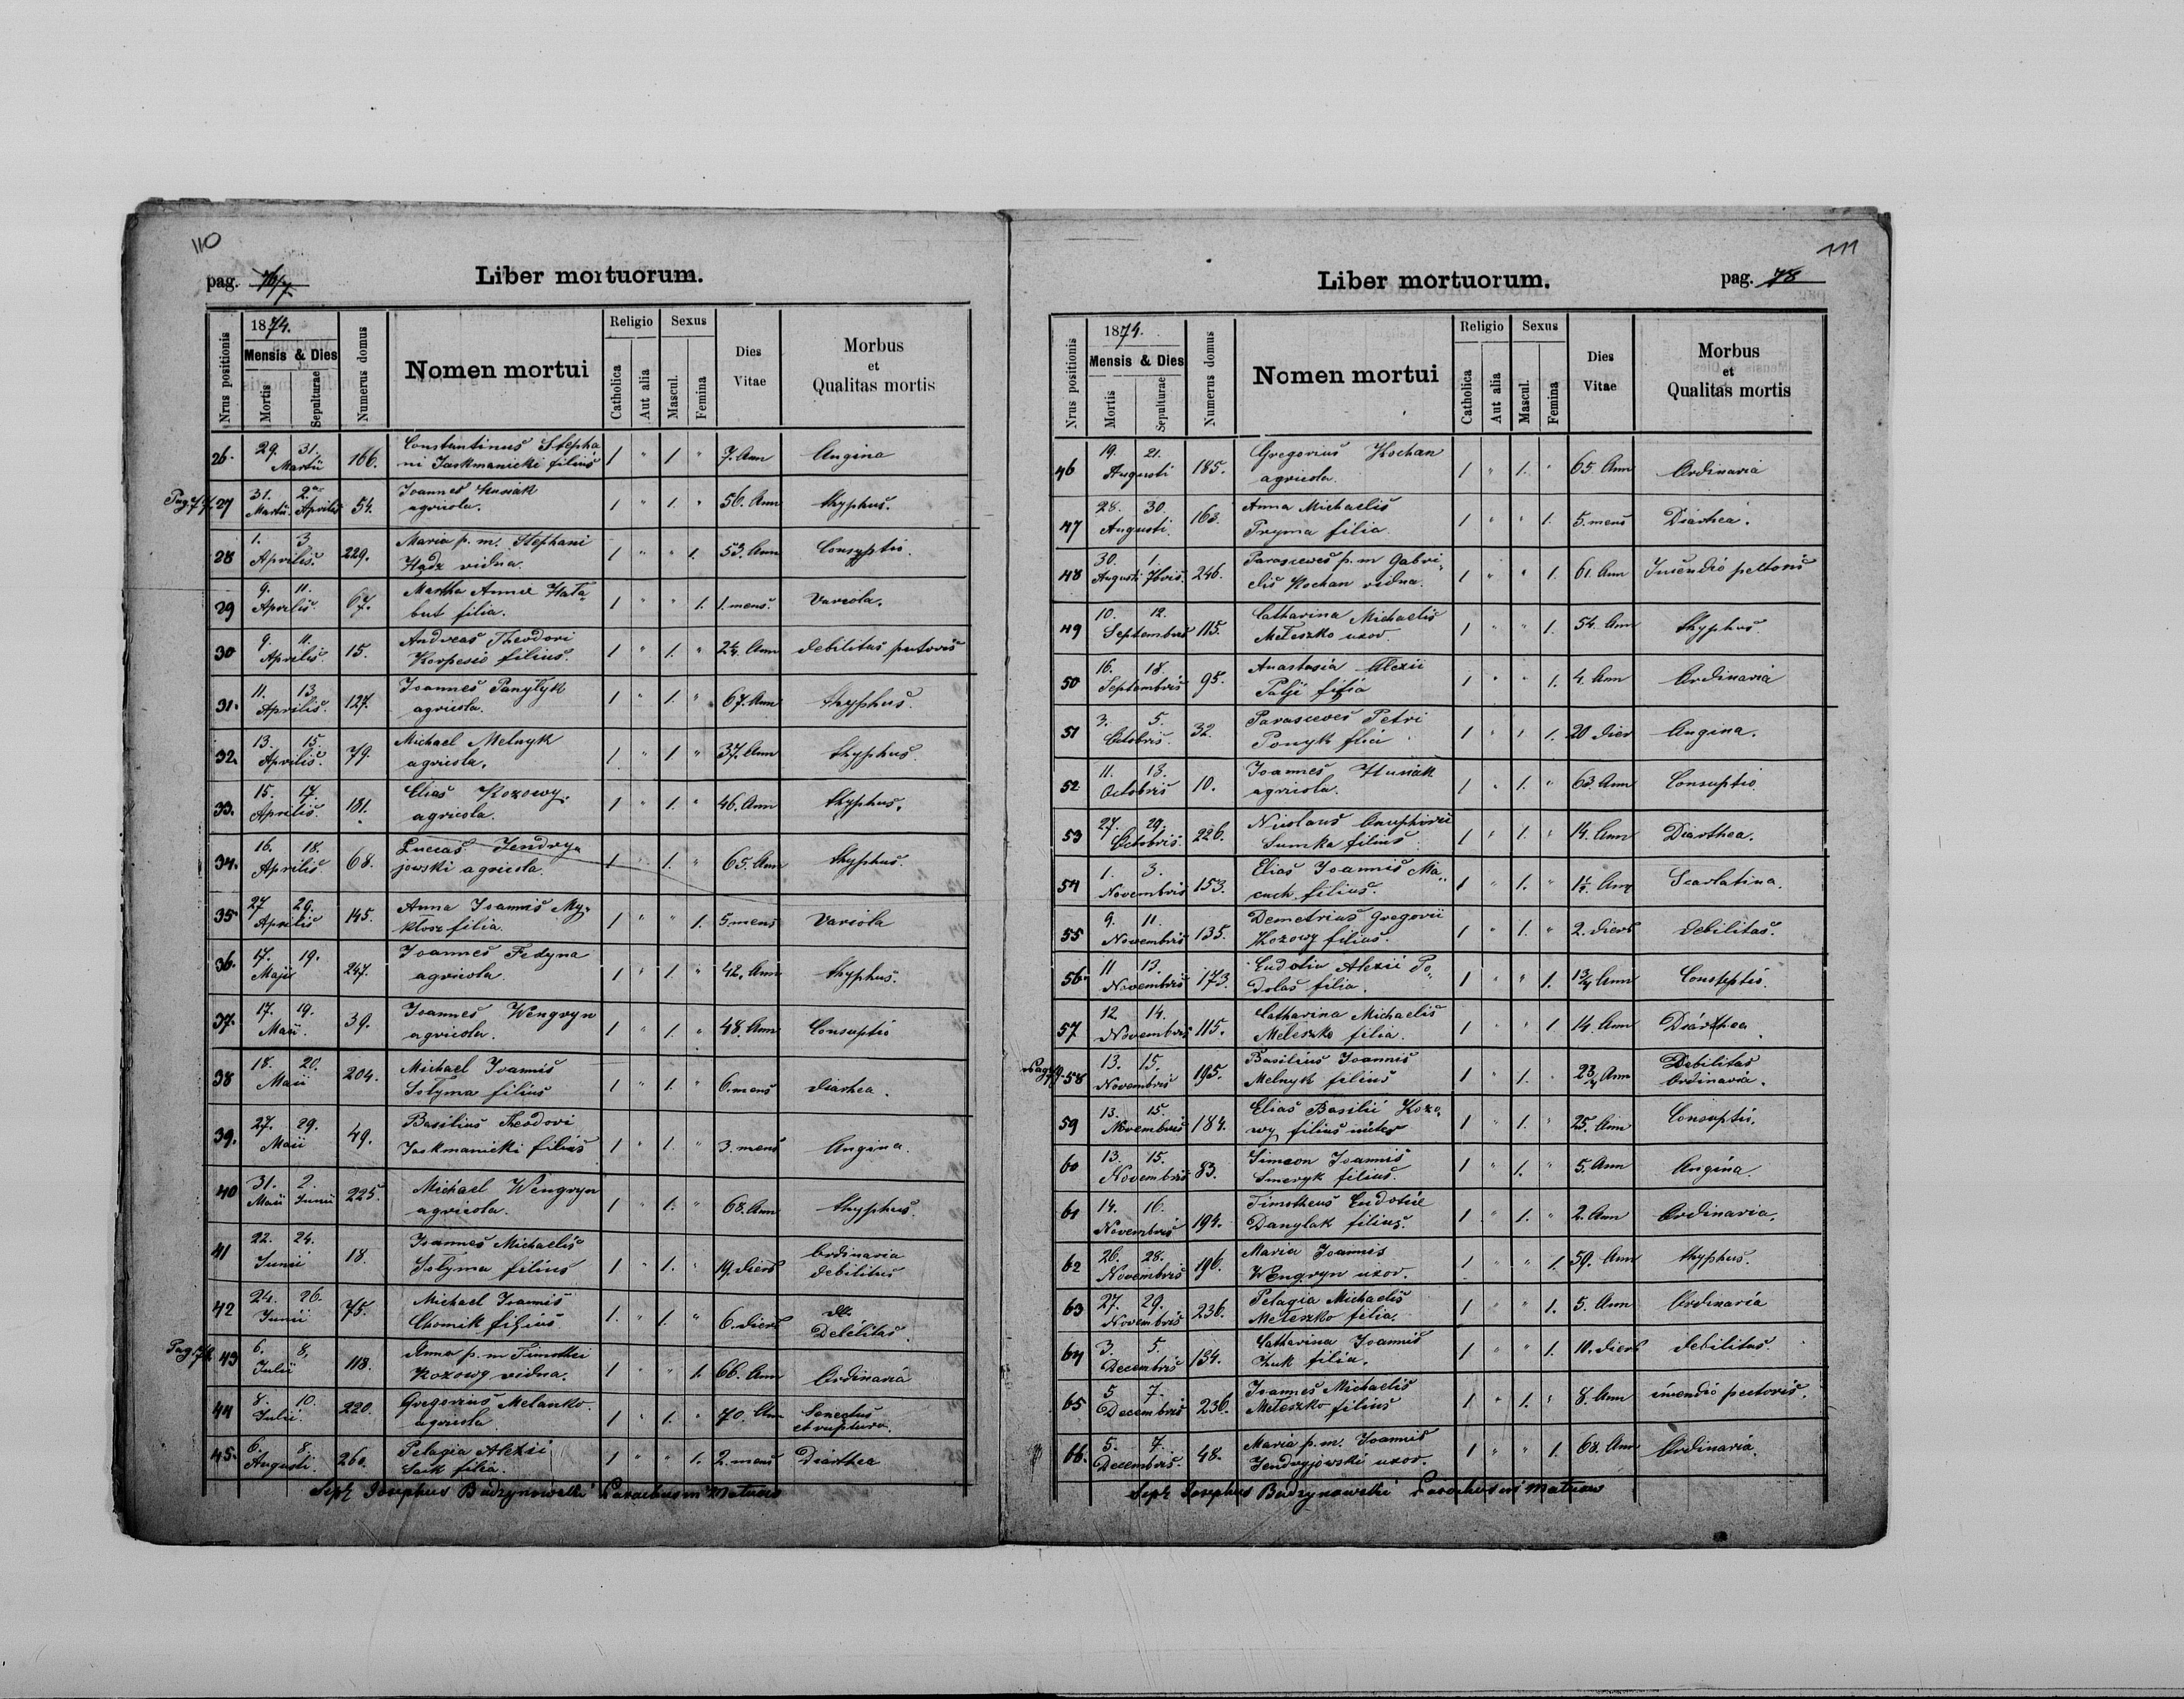 110
pag. 76/7
Liber mortuorum.
Nrus positionis
1874.
Mensis & Dies
Mortis
Sepulturae
Numerus domus
Nomen mortui
Religio
Catholica
Aut alia
Sexus
Mascul.
Femina
Dies Vitae
Morbus et Qualitas mortis
26. 29. 31. Martii 166. Constantinus Stepha
ni Jaskmanicki filius 1 " 1 " 7. Ann Angina
Pag 77. 27 31. Martii 2. Aprilis 54. Joannes Husiak
agricola. 1 " 1. " 56. Ann thyphus.
28 1. 3 Aprilis. 229. Maria p. m. Stephani
Hądz vidua. 1 " " 1. 53. Ann Consuptio.
29 9. 11. Aprilis. 67. Martha Annae Hała
but filia. 1 " " 1. 1. mens. Variola.
30 9. 11. Aprilis. 15. Andreas Theodori
Korpesio filius. 1 " 1. " 2 1/4. Ann debilitas pectoris
31. 11. 13. Aprilis. 127. Joannes Panylyk
agricola. 1 " 1. " 67. Ann thyphus.
32. 13. 15. Aprilis. 79. Michael Melnyk
agricola. 1 " 1 " 37. Ann thyphus.
33. 15. 17. Aprilis. 181. Elias Kozowy
agricola. 1 " 1. " 46. Ann thyphus.
34. 16. 18. Aprilis 68. Luccas Jendry
jowski agricola. 1 " 1. " 65. Ann thyphus.
35 27 29. Aprilis 145. Anna Joannis My
kłosz filia. 1 " " 1. 5. mens Variola
36. 17. 19. Maji 247. Joannes Fedyna
agricola. 1 " 1. " 42. Ann thyphus.
37. 17. 19. Maii. 39. Joannes Wengryn
agricola. 1 " 1. " 48. Ann Consuptio
38 18. 20. Maii 204. Michael Joannis
Solyma filius 1 " 1. " 6. mens diarhea.
39. 27. 29. Maii 49. Basilius Theodori
Jaskmanicki filius 1 " 1. " 3. mens Angina.
40 31. Maii 2. Junii 225. Michael Wengryn
agricola. 1 " 1. " 68. Ann thyphus.
41 22. 24. Junii 18. Joannes Michaelis
Solyma filius 1 " 1. " 19. diers Ordinaria
debilitas
42 24. 26. Junii 75. Michael Joannis
Chomik filius 1. " 1. " 6. diers
Debilitas.
43 6. 8. Julii 118. Anna p. m Timothei
Kozowy vidua. 1 " " 1. 66. Ann Ordinaria
44 8. 10. Julii. 220. Gregorius Melanko.
agricola 1 " 1. " 70. Ann Senectus
et ruptura.
45. 6. 8. Augusti. 260. Pelagia Alexii
Saik filia. 1 " " 1. 2. mens Diarthea
Josephus Budzynowski Parochus in Matuow
111
Liber mortuorum.
pag. 78
Nrus positionis
1874.
Mensis & Dies
Mortis
Sepulturae
Numerus domus
Nomen mortui
Religio
Catholica
Aut alia
Sexus
Mascul.
Femina
Dies Vitae
Morbus et Qualitas mortis
46 19. 21. Augusti 185. Gregorius Kochan
agricola. 1 " 1. " 65. Ann Ordinaria
47 28. 30. Augusti. 163. Anna Michaelis
Pryma filia. 1 " " 1. 5. mens Diarhea.
48 30. Augusti 1. 7bris. 246. Parascewes p. m Gabri
elis Kochan vidua. 1 " " 1. 61. Ann Incendio pectoris
49 10. 12. Septembris 115. Catharina Michaelis
Meleszko uxor. 1 " " 1. 54. Ann thyphus.
50 16. 18. Septembris 95. Anastasia Alexii
Patji filia 1 " " 1. 4. Ann Ordinaria
51 3. 5. Octobris. 32. Parascewes Petri
Ponyk flia 1 " " 1. 20 dier Angina.
52 11. 13. Octobris 10. Joannes Husiak
agricola. 1 " 1. " 63. Ann Consuptio
53 27. 29. Octobris. 226. Nicolaus Onuphrii
Sumka filius. 1 " 1. " 14. Ann Diarthea.
54 1. 3. Novembris 153. Elias Joannis Ma
cuch filius. 1 " 1. " 1 1/2. Ann Scarlatina.
55 9. 11. Novembris 135. Demetrius Gregorii
Kozowy filius. 1 " 1. " 2. diers debilitas.
56. 11 13. Novembris 173. Eudotia Alexii Po
dolas filia. 1 " " 1. 1 3/4 Ann Consuptio.
57 12. 14. Novembris 115. Catharina Michaelis
Meleszko filia. 1 " " 1. 14. Ann Diarthea
58 13. 15. Novembris 195. Basilius Joannis
Melnyk filius 1 " 1. " 2 3/4 Ann Debilitas
Ordinaria.
59 13. 15. Novembris 184. Elias Basilii Kozo
wy filius miles 1 " 1. " 25. Ann Consuptio.
60 13. 15. Novembris 83. Simeon Joannis
Smeryk filius. 1 " 1. " 5. Ann Angina.
61 14. 16. Novembris 194. Timotheus Eudotiae
Danylak filius. 1 " 1. " 2. Ann Ordinaria.
62 26. 28. Novembris 196. Maria Joannis
Wengryn uxor. 1 " " 1. 59. Ann thyphus.
63 27. 29. Novembris 236. Pelagia Michaelis
Meleszko filia. 1 " " 1. 5. Ann Ordinaria
64 3. 5. Decembris 134. Catharina Joannis
Zuk filia. 1 " " 1. 10. diers debilitas.
65 5 7. Decembris 236. Joannes Michaelis
Meleszko filius 1 " 1. " 8. Ann incendio pectoris.
66. 5. 7. Decembris. 48. Maria p. m. Joannis
Jendryjowski uxor. 1 " " 1. 68. Ann Ordinaria.
Josephus Budzynowski Parochus in Matuow